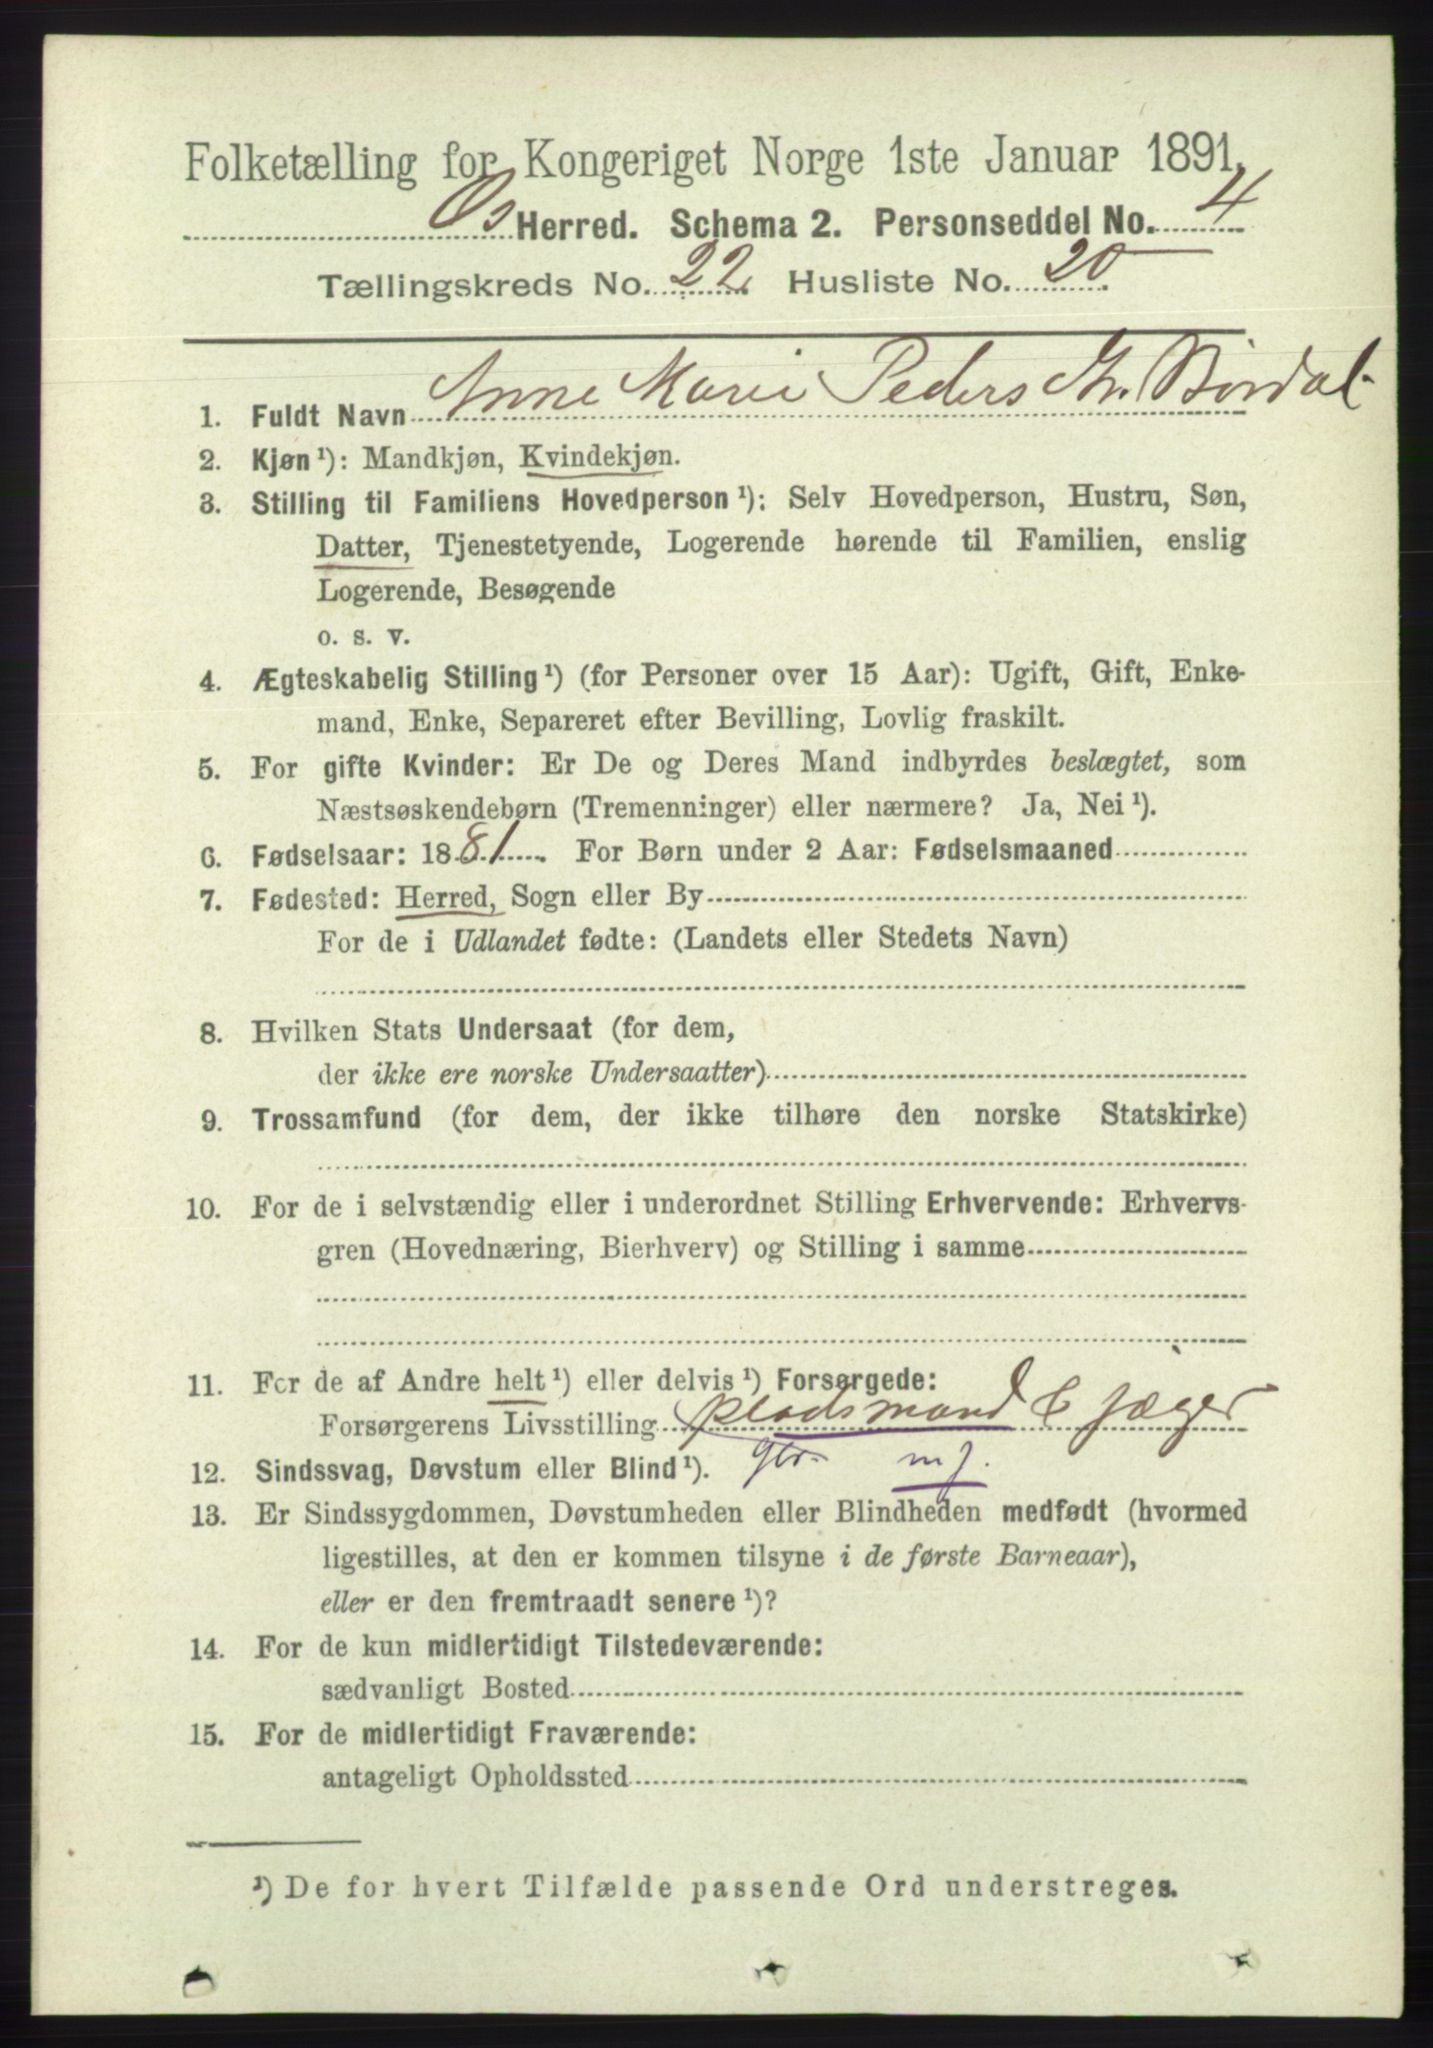 Folketælling for Kongeriget Norge 1ste Januar 1891.
Os Herred. Schema 2. Personseddel No. 4
Tællingskreds No. 22. Husliste No. 20
1. Fuldt Navn Anne Marie Peders
2. Kjøn ¹): Mandkjøn, Kvindekjøn.
3. Stilling til Familiens Hovedperson ¹): Selv Hovedperson, Hustru, Søn,
Datter, Tjenestetyende, Logerende hørende til Familien, enslig
Logerende, Besøgende
o. s. v.
4. Ægteskabelig Stilling ¹) (for Personer over 15 Aar): Ugift, Gift, Enke-
mand, Enke, Separeret efter Bevilling, Lovlig fraskilt.
5. For gifte Kvinder: Er De og Deres Mand indbyrdes beslægtet, som
Næstsøskendebørn (Tremenninger) eller nærmere? Ja, Nei ¹).
6. Fødselsaar: 1881. For Børn under 2 Aar: Fødselsmaaned
7. Fødested: Herred, Sogn eller By
For de i Udlandet fødte: (Landets eller Stedets Navn)
8. Hvilken Stats Undersaat (for dem,
der ikke ere norske Undersaatter)
9. Trossamfund (for dem, der ikke tilhøre den norske Statskirke)
10. For de i selvstændig eller i underordnet Stilling Erhvervende: Erhvervs-
gren (Hovednæring, Bierhverv) og Stilling i samme
11. For de af Andre helt ¹) eller delvis ¹) Forsørgede:
Forsørgerens Livsstilling pladsmand & jæger
12. Sindssvag, Døvstum eller Blind ¹). mj.
13. Er Sindssygdommen, Døvstumheden eller Blindheden medfødt (hvormed
ligestilles, at den er kommen tilsyne i de første Barneaar),
eller er den fremtraadt senere ¹)?
14. For de kun midlertidigt Tilstedeværende:
sædvanligt Bosted
15. For de midlertidigt Fraværende:
antageligt Opholdssted
¹) De for hvert Tilfælde passende Ord understreges.